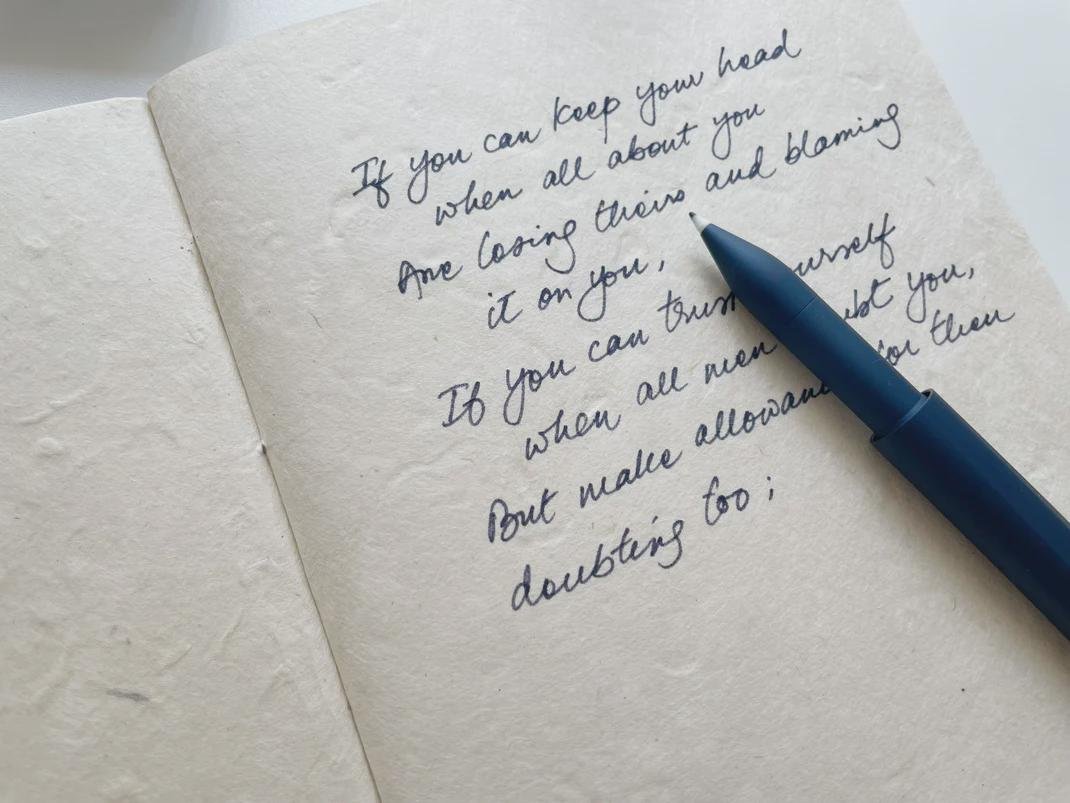 If you can keep your head
when all about you
Are losing theirs and blaming
it on you,
If you can trust yourself
when all men doubt you,
But make allowance for then
doubting too;